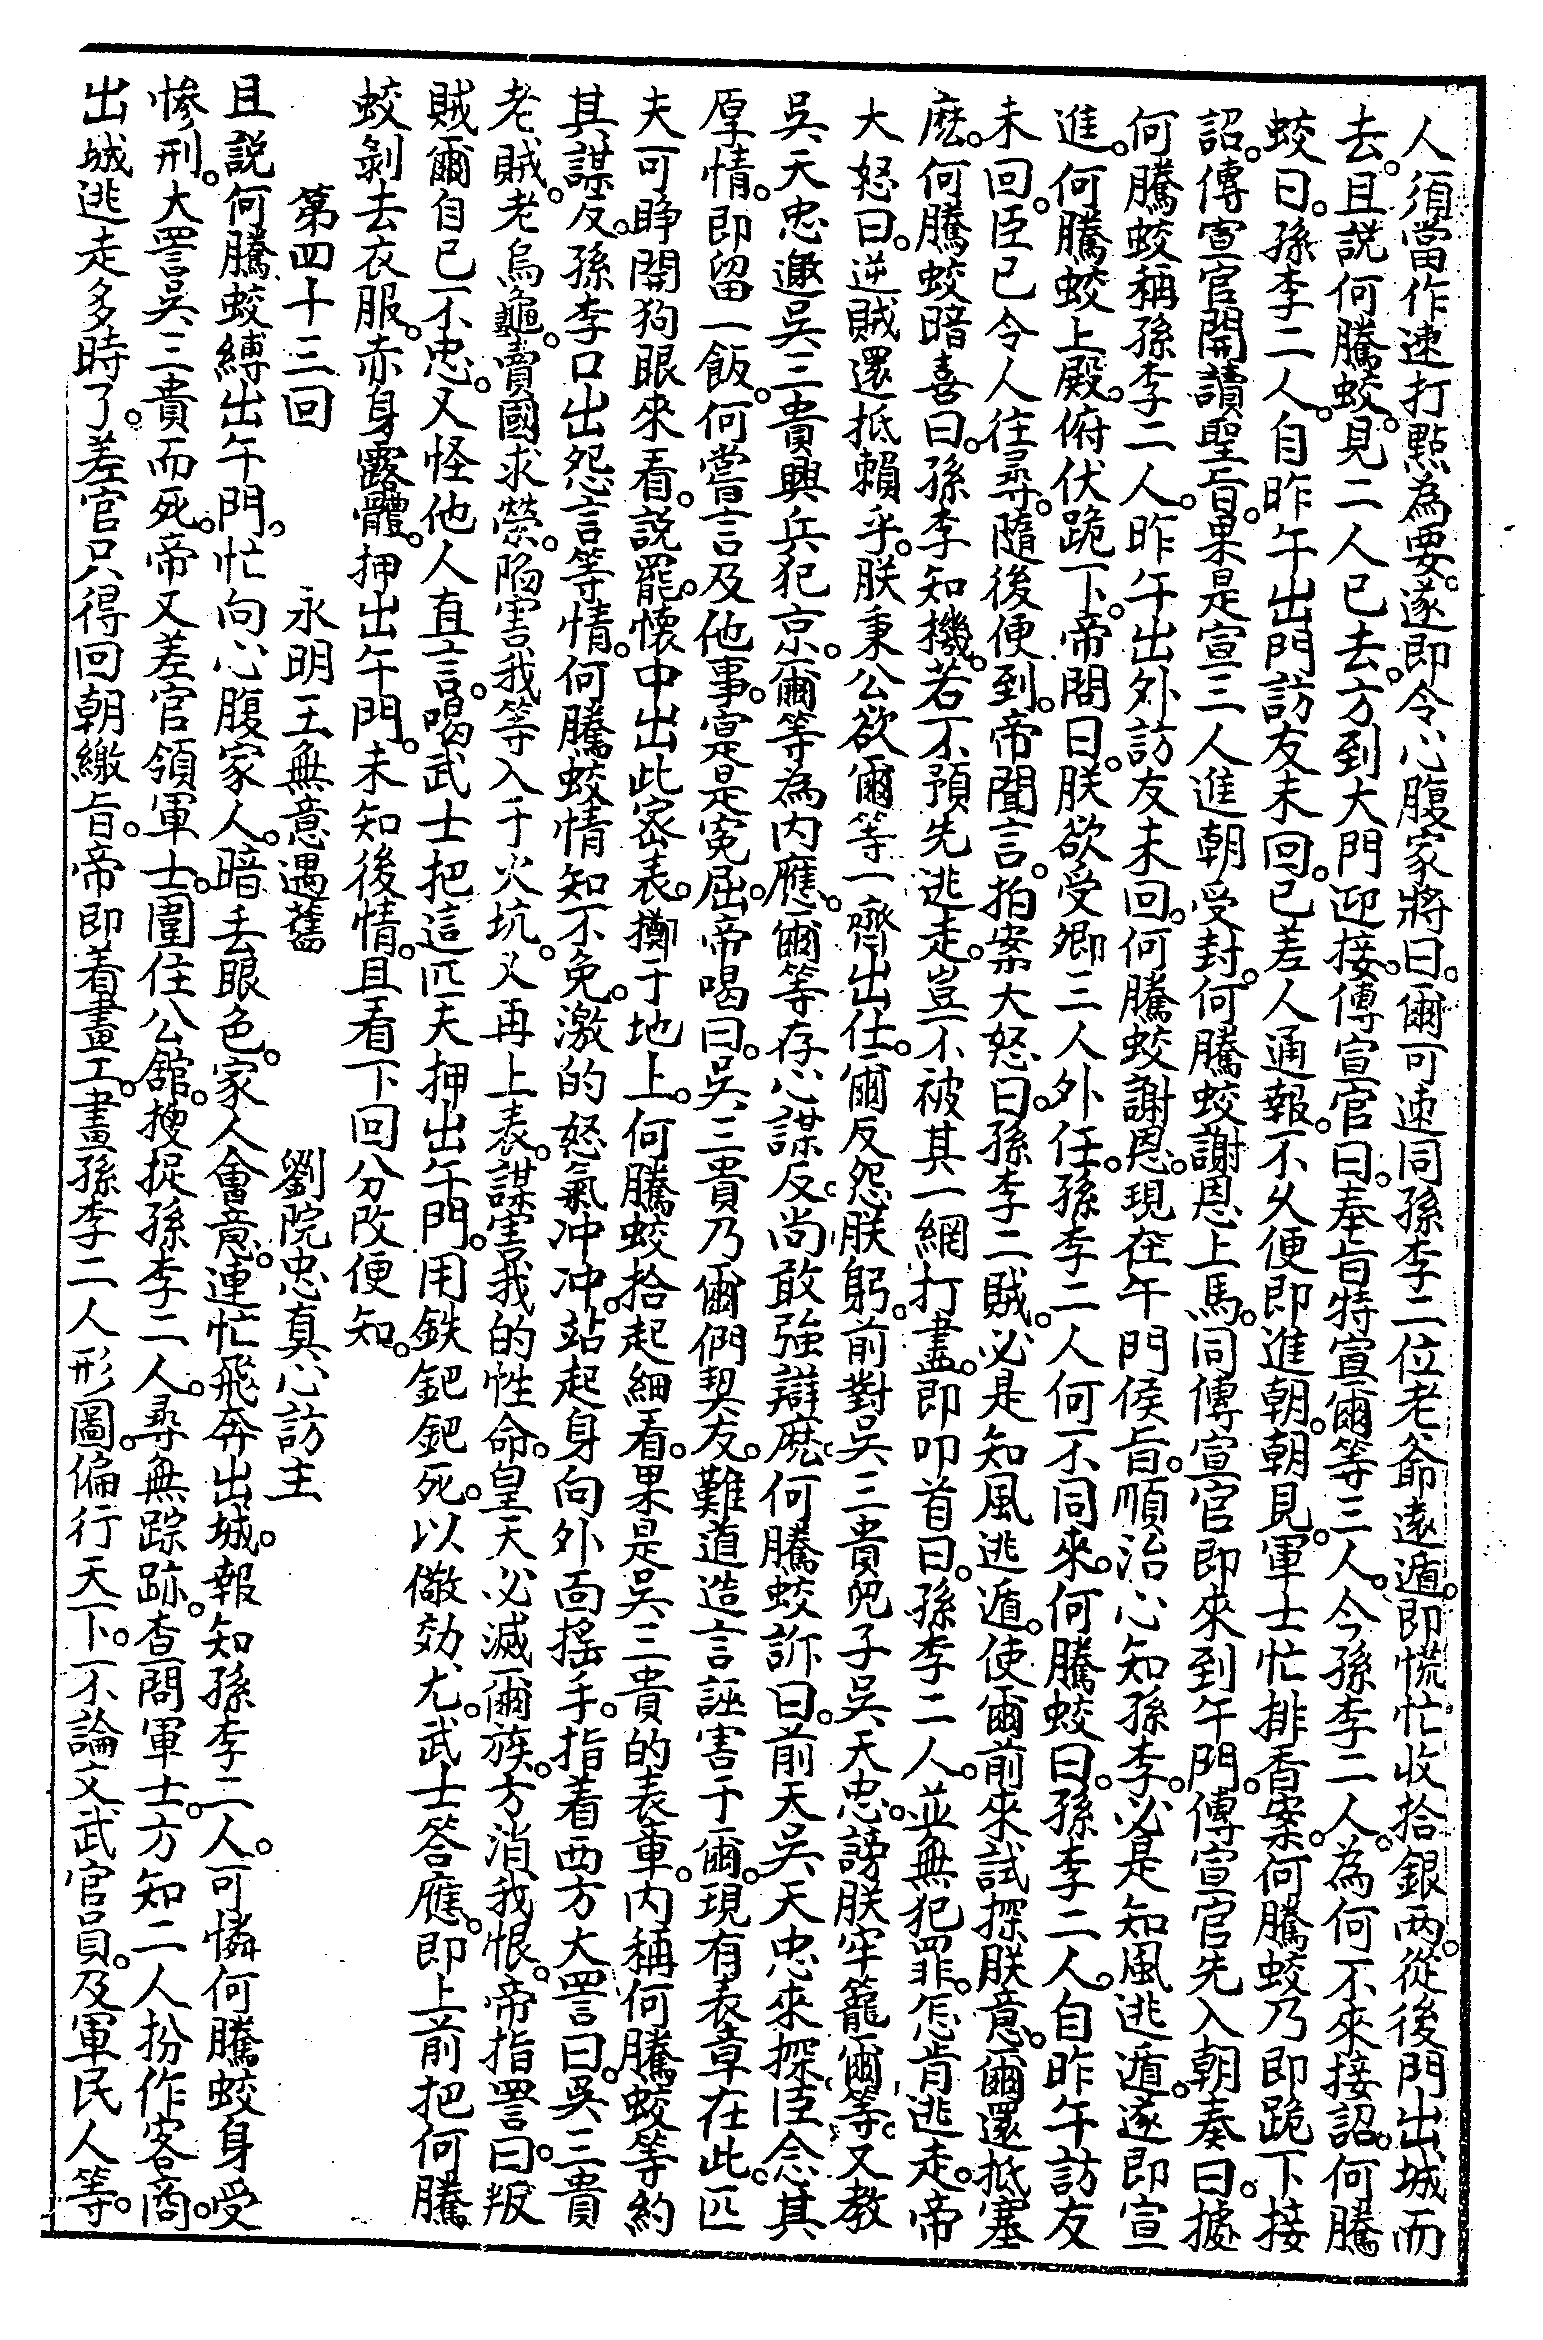 人須當作速打點為要。遂即令心腹家將曰。爾可速同孫李二位老爺遠遁。即慌忙收拾銀两。從後門出城而
去。且説何騰蛟。見二人已去。方到大門迎接。傳宣官曰。奉旨特宣爾等三人。今孫李二人。為何不來接詔。何騰
蛟曰。孫李二人。自昨午出門訪友未回。已差人通報。不久便即進朝。朝見。軍士忙排香案。何騰蛟乃即跪下接
詔。傳宣官開讀聖旨。果是宣三人進朝受封。何騰蛟謝恩上馬。同傳宣官即來到午門。傳宣官先入朝奏曰。據
何騰蛟稱孫李二人。昨午出外訪友未回。何騰蛟謝恩。現在午門候旨。順治心知孫李。必是知風逃遁。遂即宣
進。何騰蛟上殿。俯伏跪下。帝問曰。朕欲受卿三人外任。孫李二人何不同來。何騰蛟曰。孫李二人。自昨午訪友
未回。臣已令人往尋。隨後便到。帝聞言。拍案大怒曰。孫李二賊。必是知風逃遁。使爾前來試探朕意。爾還抵塞
麽。何騰蛟暗喜曰。孫李知機。若不預先逃走。豈不被其一網打盡。即叩首曰。孫李二人。並無犯罪。怎肯逃走。帝
大怒曰。逆賊還抵賴乎。朕秉公欲爾等一齊出仕。爾反怨朕躬。前對吳三貴兒子吳天忠。謗朕牢籠爾等。又教
吳天忠邀吳三貴興兵犯京。爾等為内應。爾等存心謀反。尚敢強辯麽。何騰蛟訴曰。前天吳天忠來探臣念其
厚情。即留一飯。何嘗言及他事。寔是寃屈。帝喝曰。吳三貴乃爾們契友。難道造言誣害于爾。現有表章在此。匹
夫可睁開狗眼來看。説罷。懷中出此密表。擲于地上。何騰蛟拾起細看。果是吳三貴的表章。内稱何騰蛟等約
其謀反。孫李口出怨言等情。何騰蛟情知不免。激的怒氣冲冲。站起身向外面搖手。指着西方大罵曰。吳三貴
老賊。老烏龜。賣國求榮。陷害我等入于火坑。又再上表。謀害我的性命。皇天必滅爾族。方消我恨。帝指罵曰。叛
賊爾自已不忠。又怪他人直言。喝武士把這匹夫押出午門。用鉄鈀鈀死。以儆効尤。武士答應。即上前把何騰
蛟剝去衣服。赤身露體。押出午門。未知後情。且看下回分改便知。
第四十三回　永明王無意遇舊　劉院忠真心訪主
且説何騰蛟縛出午門。忙向心腹家人。暗丢眼色。家人會意。連忙飛奔出城。報知孫李二人。可憐何騰蛟身受
慘刑。大罵吳三貴而死。帝又差官領軍士。圍住公舘。搜捉孫李二人。尋無踪跡。查問軍士。方知二人扮作客商。
出城逃走多時了。差官只得回朝繳旨。帝即着畫工。畫孫李二人形圖。偏行天下。不論文武官員。及軍民人等。